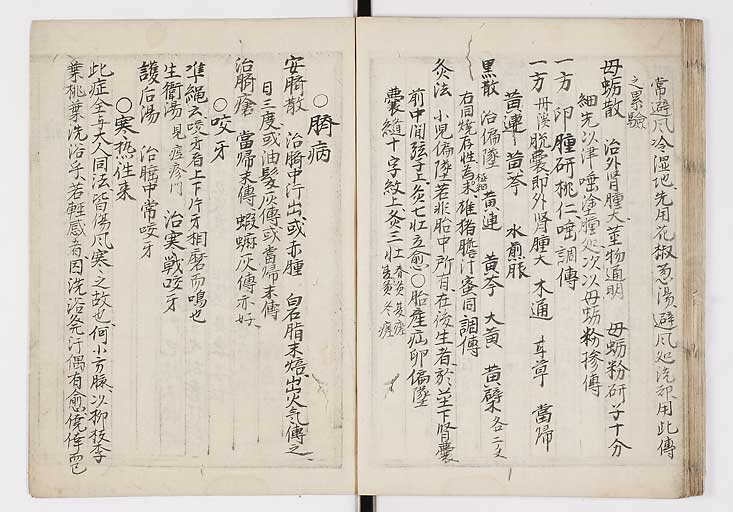 常避風冷湿地先用花椒葱湯避風処洗却用此傅
之累驗
牡蛎散 治外腎腫大茎物通明 牡蛎粉研子十分
細先以津唾塗腫処次以牡蛎粉摻傅
一方 卯腫研桃仁唾調傅
一方 丹溪脱囊即外腎腫大 木通 甘草 當帰
黄連 黄芩 水煎服
黒散 治偏墜 黄連 黄芩 大黄 黄檗 各二文
右同焼存性為末雄猪膽汁蜜同調傅
灸法 小児偏墜若非胎中所有在後生者於茎下腎囊
前中間弦子上灸七壮立愈○胎産疝卵偏墜
囊縫十字紋上灸三壮 春灸夏瘥 夏灸冬瘥
○臍病
安臍散 治臍中汁出或赤腫 白石脂末焙出火気傅之
日三度或油髪灰傅或當帰末傅
治臍瘡 當帰末傅 蝦蟆灰傅亦好
○咬牙
準繩云咬牙者上下片牙相磨而鳴也
生衛湯 見痘疹門 治寒戰咬牙
護后湯 治睡中常咬牙
○寒热往来
此症全与大人同法皆傷風寒之故也何小方脉以柳枝李
葉桃葉洗浴乎若輕感者因洗浴発汗偶有愈僥倖而已